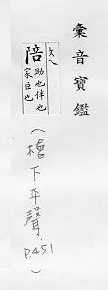 彙音寶鑑
陪
助也伴也
家臣也
(檜下平聲,
P.451)